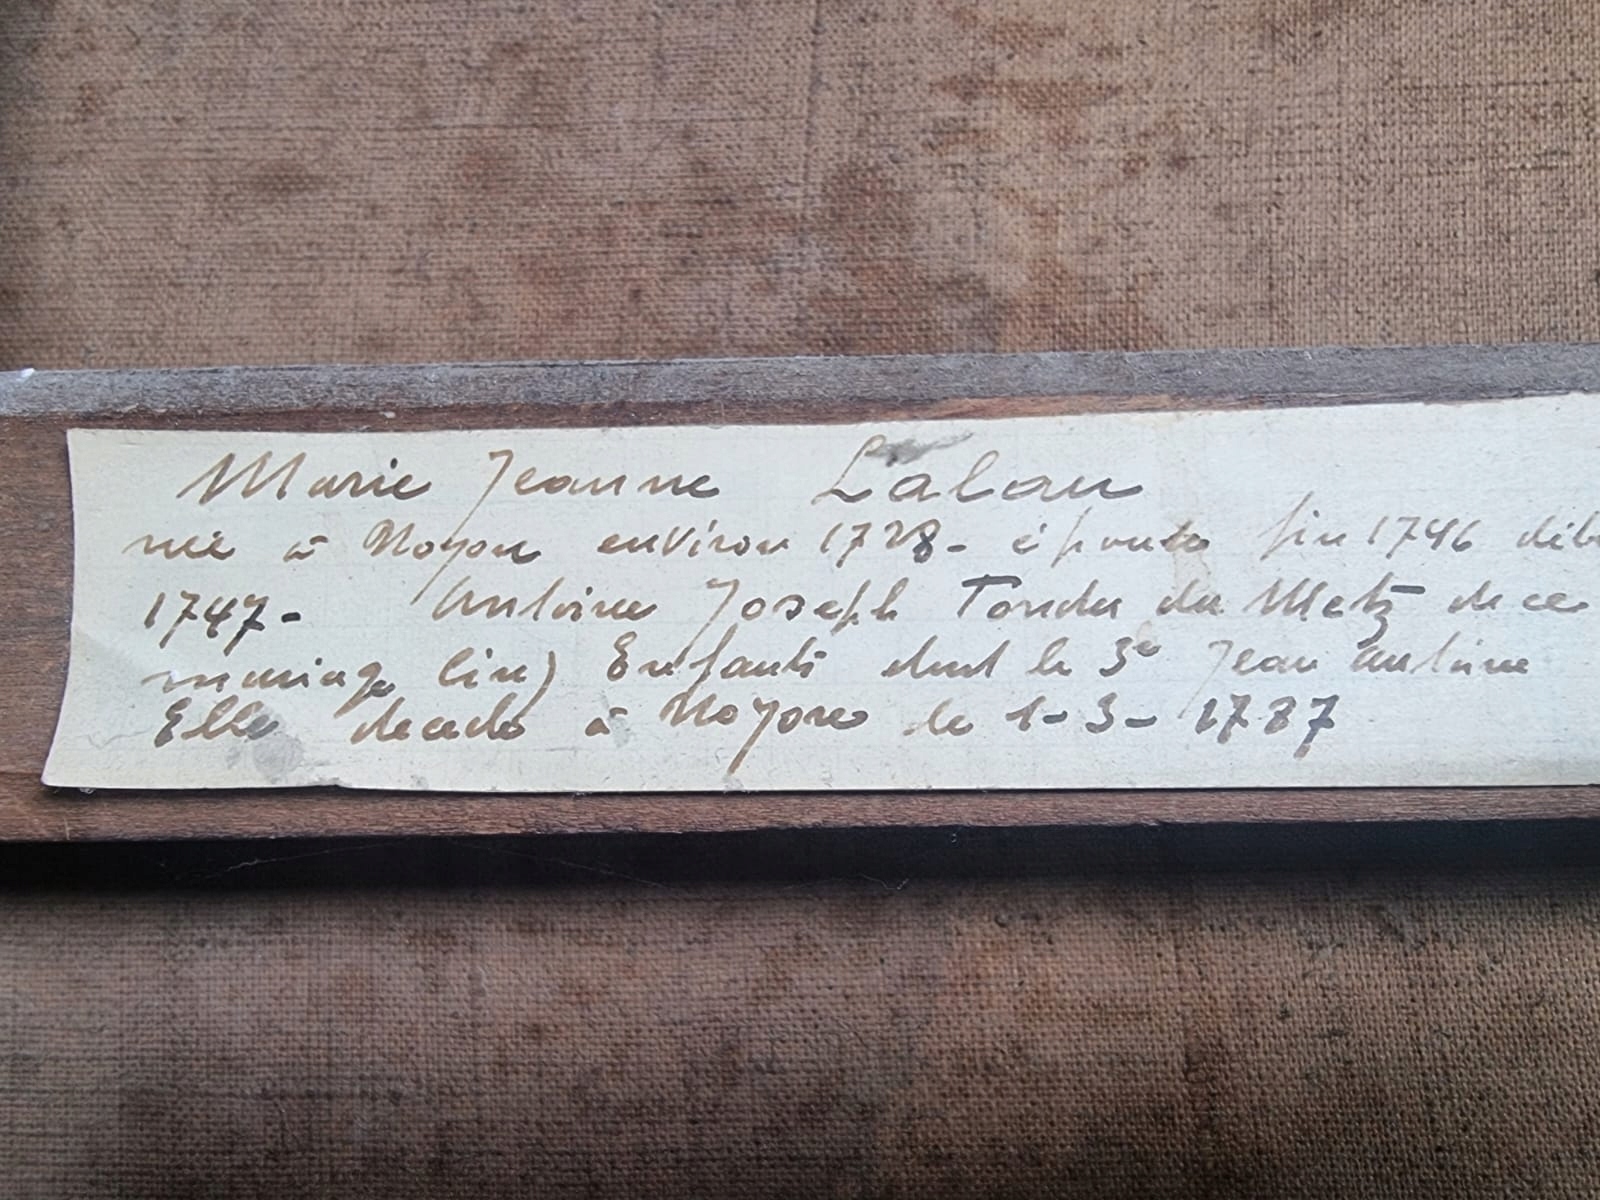 Marie Jeanne Lalau
née à Noyon environ 1728 - épouse fin 1746 déb
1747 - Antoine Joseph Tondu du Metz de ce
mariage cinq Enfants dont le 3e Jean Antoine
Elle décede à Noyon le 1-3-1787